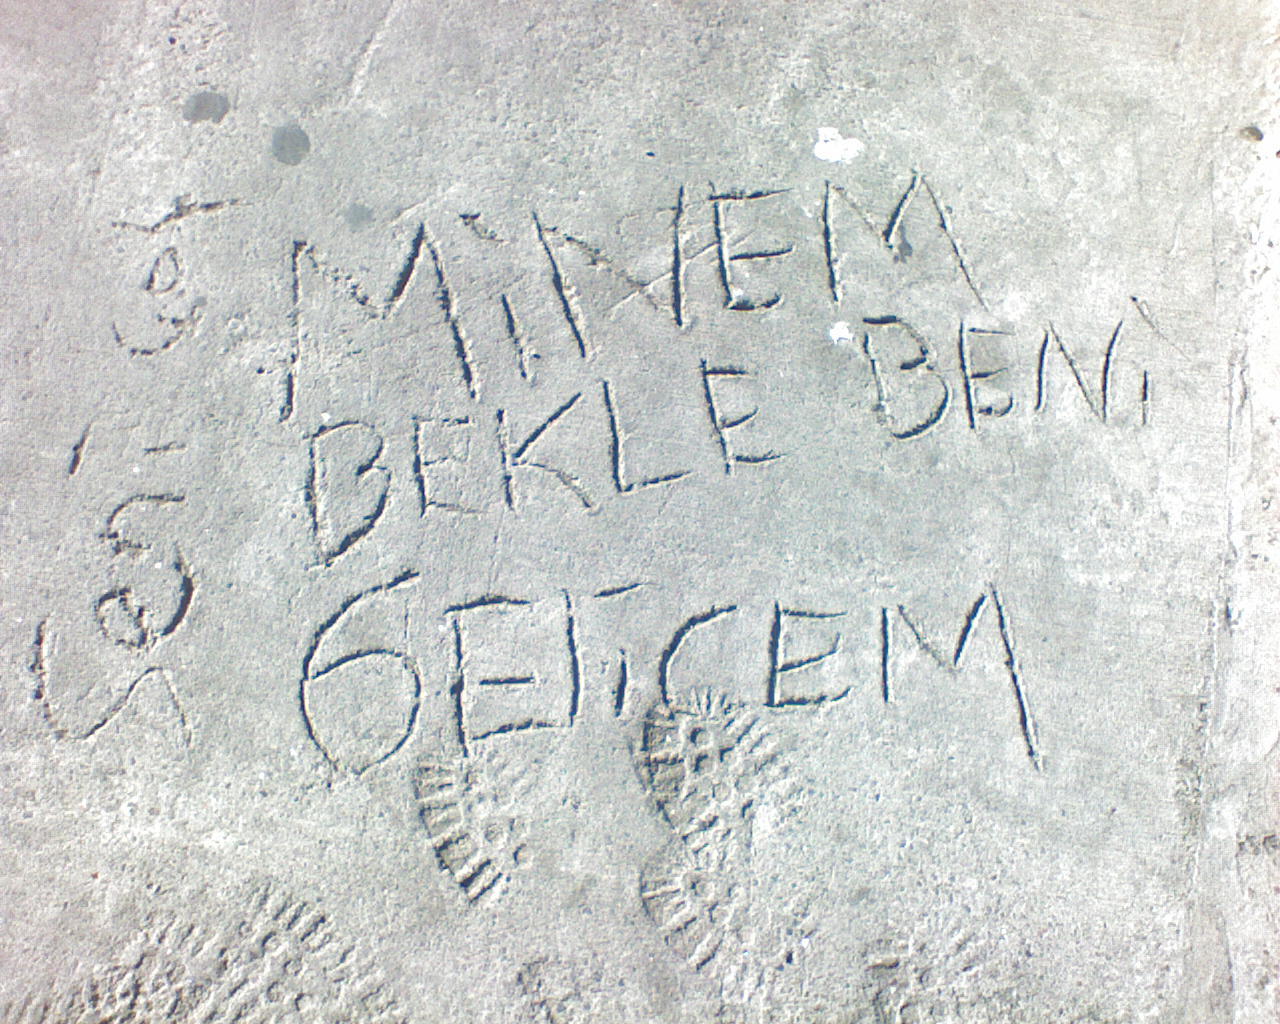 MİNEM
BEKLE BENİ
GELİCEM